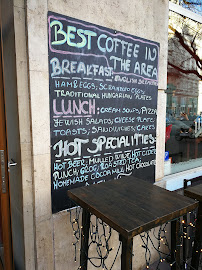 BEST COFFEE IN
THE AREA
BREAKFAST: ENGLISH BREAKFAST
HAM & EGGS; SCRAMBLED EGGS
TRADITIONAL HUNGARIAN PLATES
LUNCH: CREAM SOUPS; PIZZA
JEWISH SALADS; CHEESE PLATE
TOASTS; SANDWICHES; CAKES
HOT SPECIALITIES:
HOT BEER, MULLED WINE, HOT CIDER
PUNCH, GROG, ROASTED TEA
HOMEMADE COCOA MILK HOT CHOCOLATE